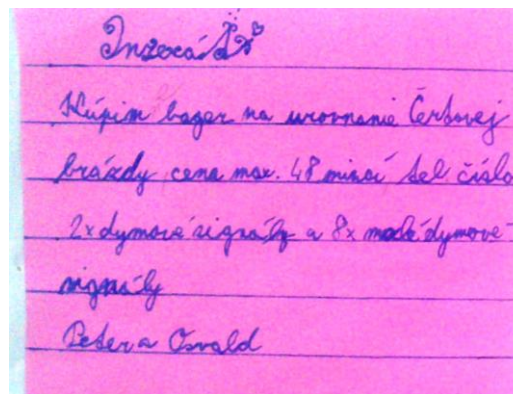 Inzerát
Kúpim bager na urovnanie Čertovej
brázdy cena max. 48 mincí tel číslo
2x dymové signály a 8x modé dymové
signály
Peter a Osvald